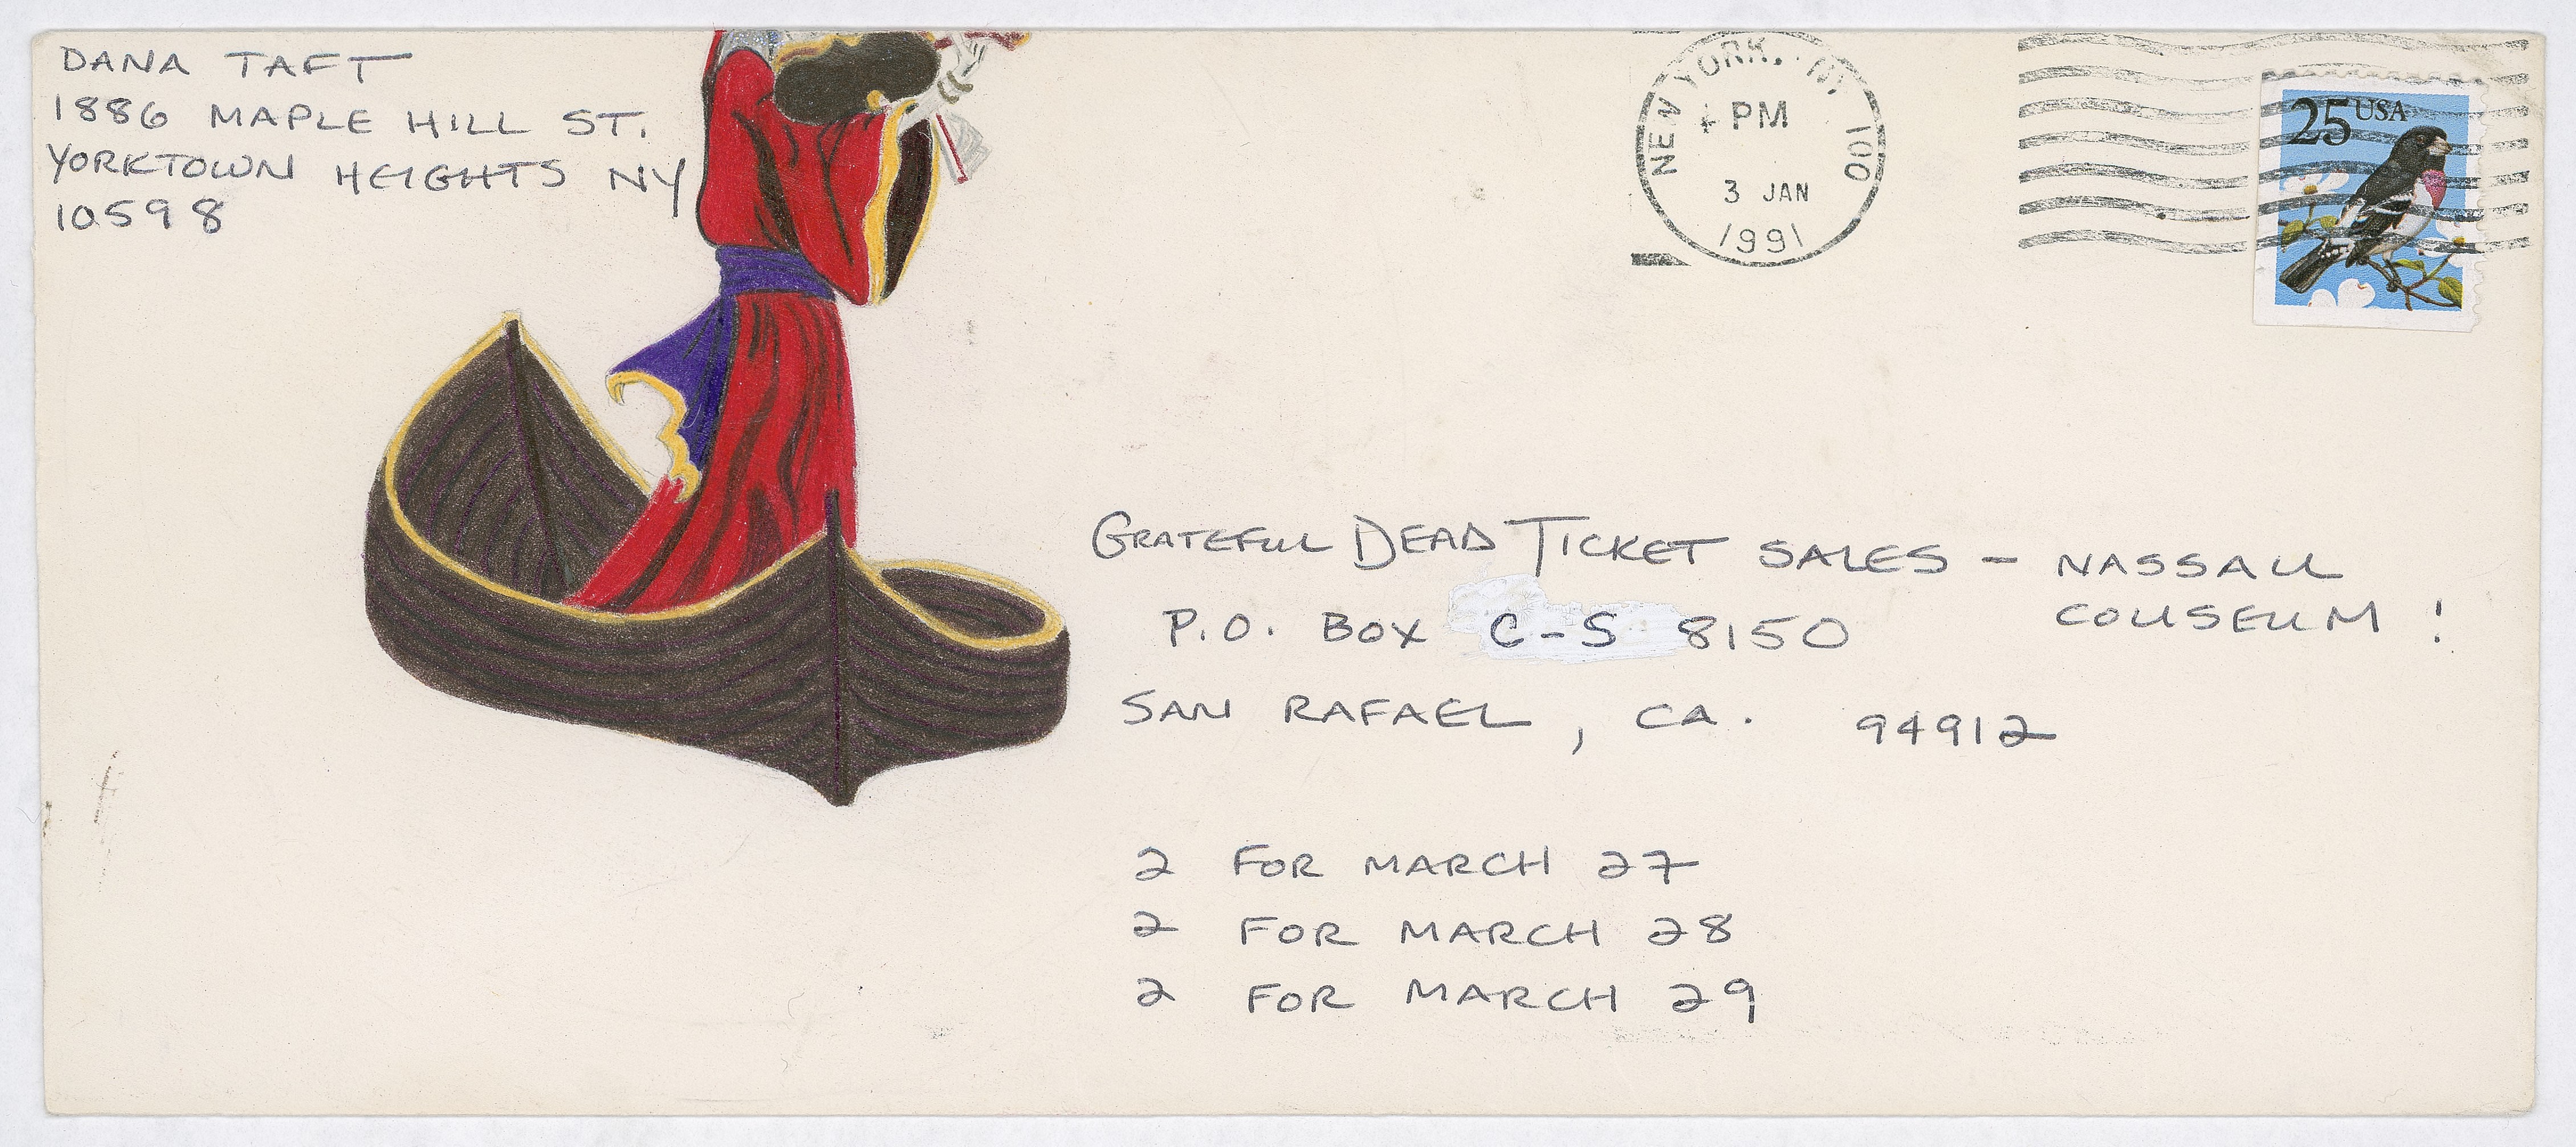 DANA TAFT
1886 MAPLE HILL ST.
YORKTOWN HEIGHTS NY
10598
NEW YORK, NY 100
PM
3 JAN
1991
25 USA
GRATEFUL DEAD TICKET SALES - NASSAU
COLISEUM !
P.O. BOX C-S 8150
SAN RAFAEL, CA. 94912
2 FOR MARCH 27
2 FOR MARCH 28
2 FOR MARCH 29